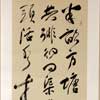 半畝方塘
共徘徊問渠
頭活水来